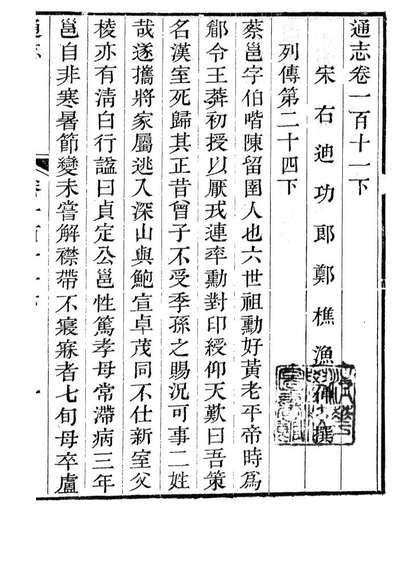 通志卷一百十一下
宋右迪功郎鄭樵漁仲撰
列傳第二十四下
蔡邕字伯喈陳留圉人也六世祖勳好黃老平帝時為
郿令王莽初授以厭戎連率勳對印綬仰天歎曰吾策
名漢室死歸其正昔曾子不受季孫之賜況可事二姓
哉遂攜將家屬逃入深山與鮑宣卓茂同不仕新室父
棱亦有清白行諡曰貞定公邕性篤孝母常滯病三年
邕自非寒暑節變未嘗解襟帶不寢寐者七旬母卒廬